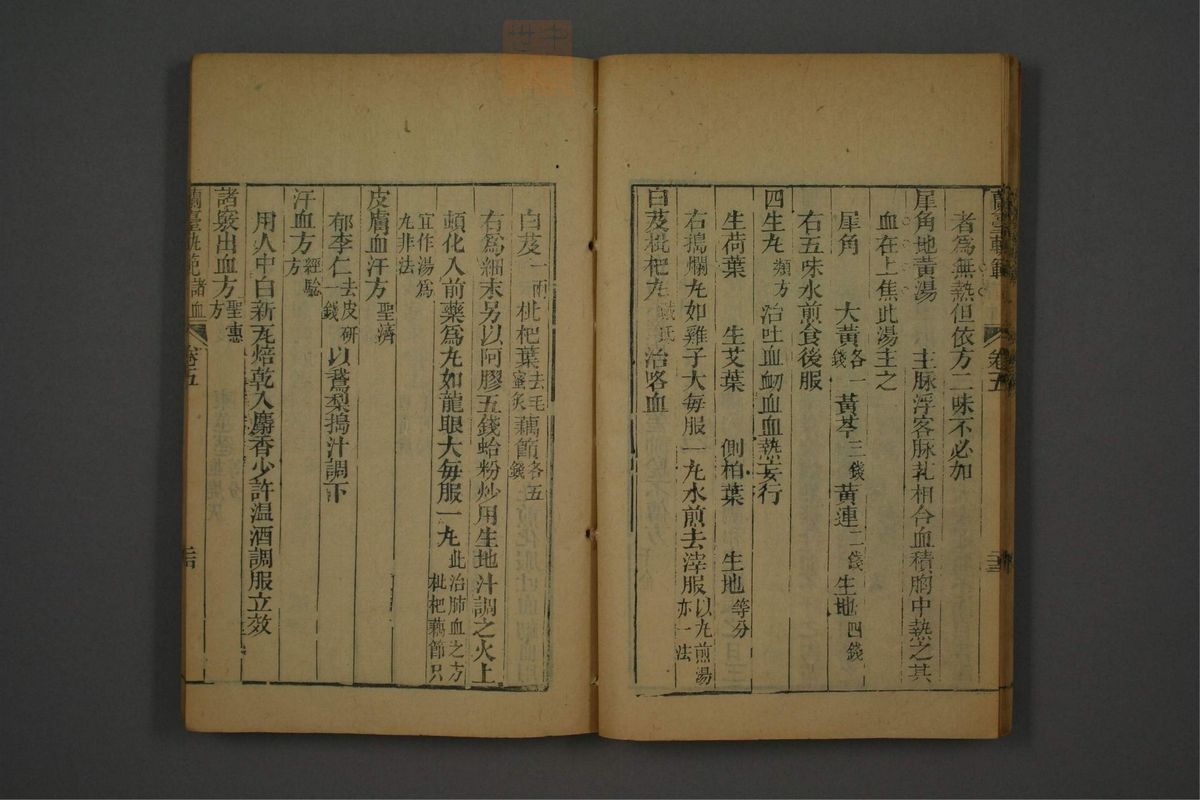 蘭臺軌範 卷五 二十三
者爲無熱但依方二味不必加
犀角地黃湯 主脉浮客脉芤相合血積胸中熱之甚
血在上焦此湯主之
犀角 大黃各一錢 黃芩三錢 黃連二錢 生地四錢
右五味水煎食後服
四生丸類方 治吐血衂血血熱妄行
生荷葉 生艾葉 側柏葉 生地等分
右搗爛丸如雞子大每服一丸水煎去滓服以丸煎湯亦一法
白芨枇杷丸戴氏 治咯血
白芨一兩 枇杷葉去毛蜜炙 藕節各五錢
右爲細末另以阿膠五錢蛤粉炒用生地汁調之火上
頓化入前藥爲丸如龍眼大每服一丸此治肺血之方枇杷藕節只
宜作湯爲丸非法
皮膚血汗方聖濟
郁李仁去皮研一錢 以鵞梨搗汁調下
汗血方經驗方
用人中白新瓦焙乾入麝香少許温酒調服立效
諸竅出血方聖惠方
蘭臺軌範 諸血 卷五 二十四